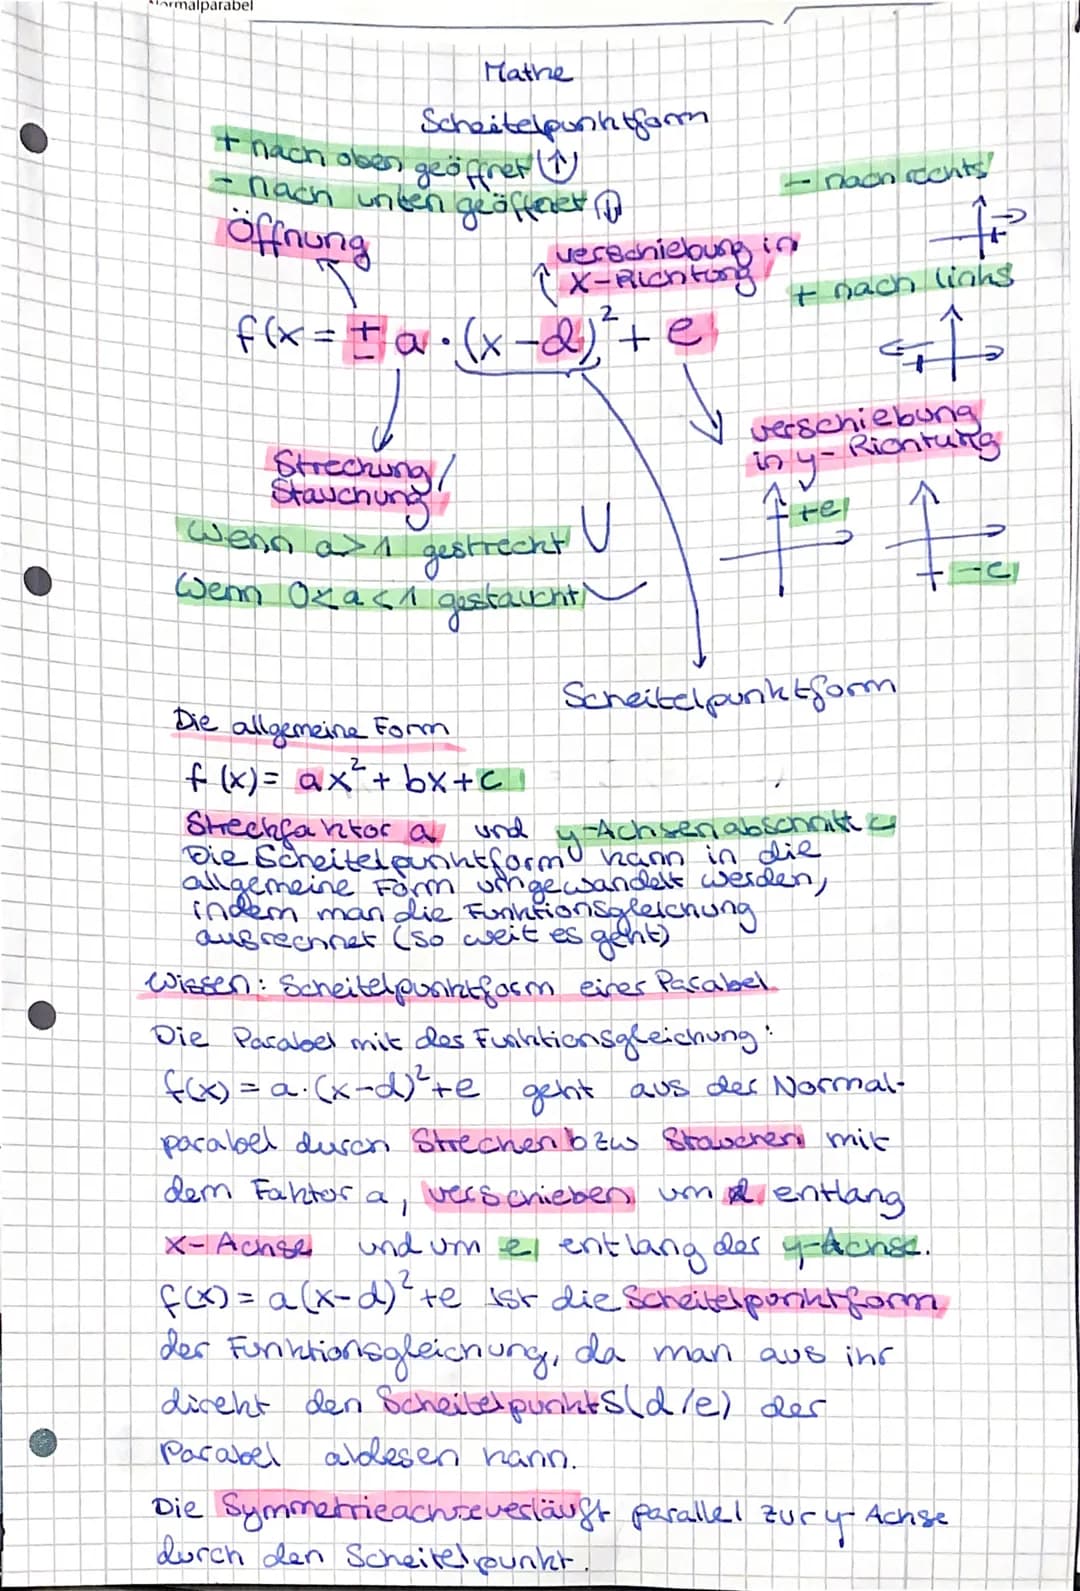 Normalparabel
Mathe
Scheitelpunktform
+ nach oben geöffnet (↑)
- nach unten geöffnet (↓)
Öffnung
- nach rechts
verschiebung in
x-Richtung
+ nach links
f(x = ± a · (x - d)² + e
Streckung/
Stauchung
verschiebung
in y-Richtung
+e
-e
Wenn a > 1 gestreckt
Wenn 0 < a < 1 gestaucht
Scheitelpunktform
Die allgemeine Form
f (x) = ax² + bx + c
Streckfaktor a und y-Achsenabschnitt c
Die Scheitelpunktform kann in die
allgemeine Form umgewandelt werden,
indem man die Funktionsgleichung
ausrechnet (so weit es geht)
Wissen: Scheitelpunktform einer Parabel
Die Parabel mit der Funktionsgleichung:
f(x) = a·(x-d)²+e geht aus der Normal-
parabel durch Strecken bzw Stauchen mit
dem Faktor a, verschieben um d entlang
x-Achse und um e entlang der y-Achse.
f(x) = a(x-d)²+e ist die Scheitelpunktform
der Funktionsgleichung, da man aus ihr
direkt den Scheitelpunkt S(d/e) der
Parabel ablesen kann.
Die Symmetrieachse verläuft parallel zur y-Achse
durch den Scheitelpunkt.